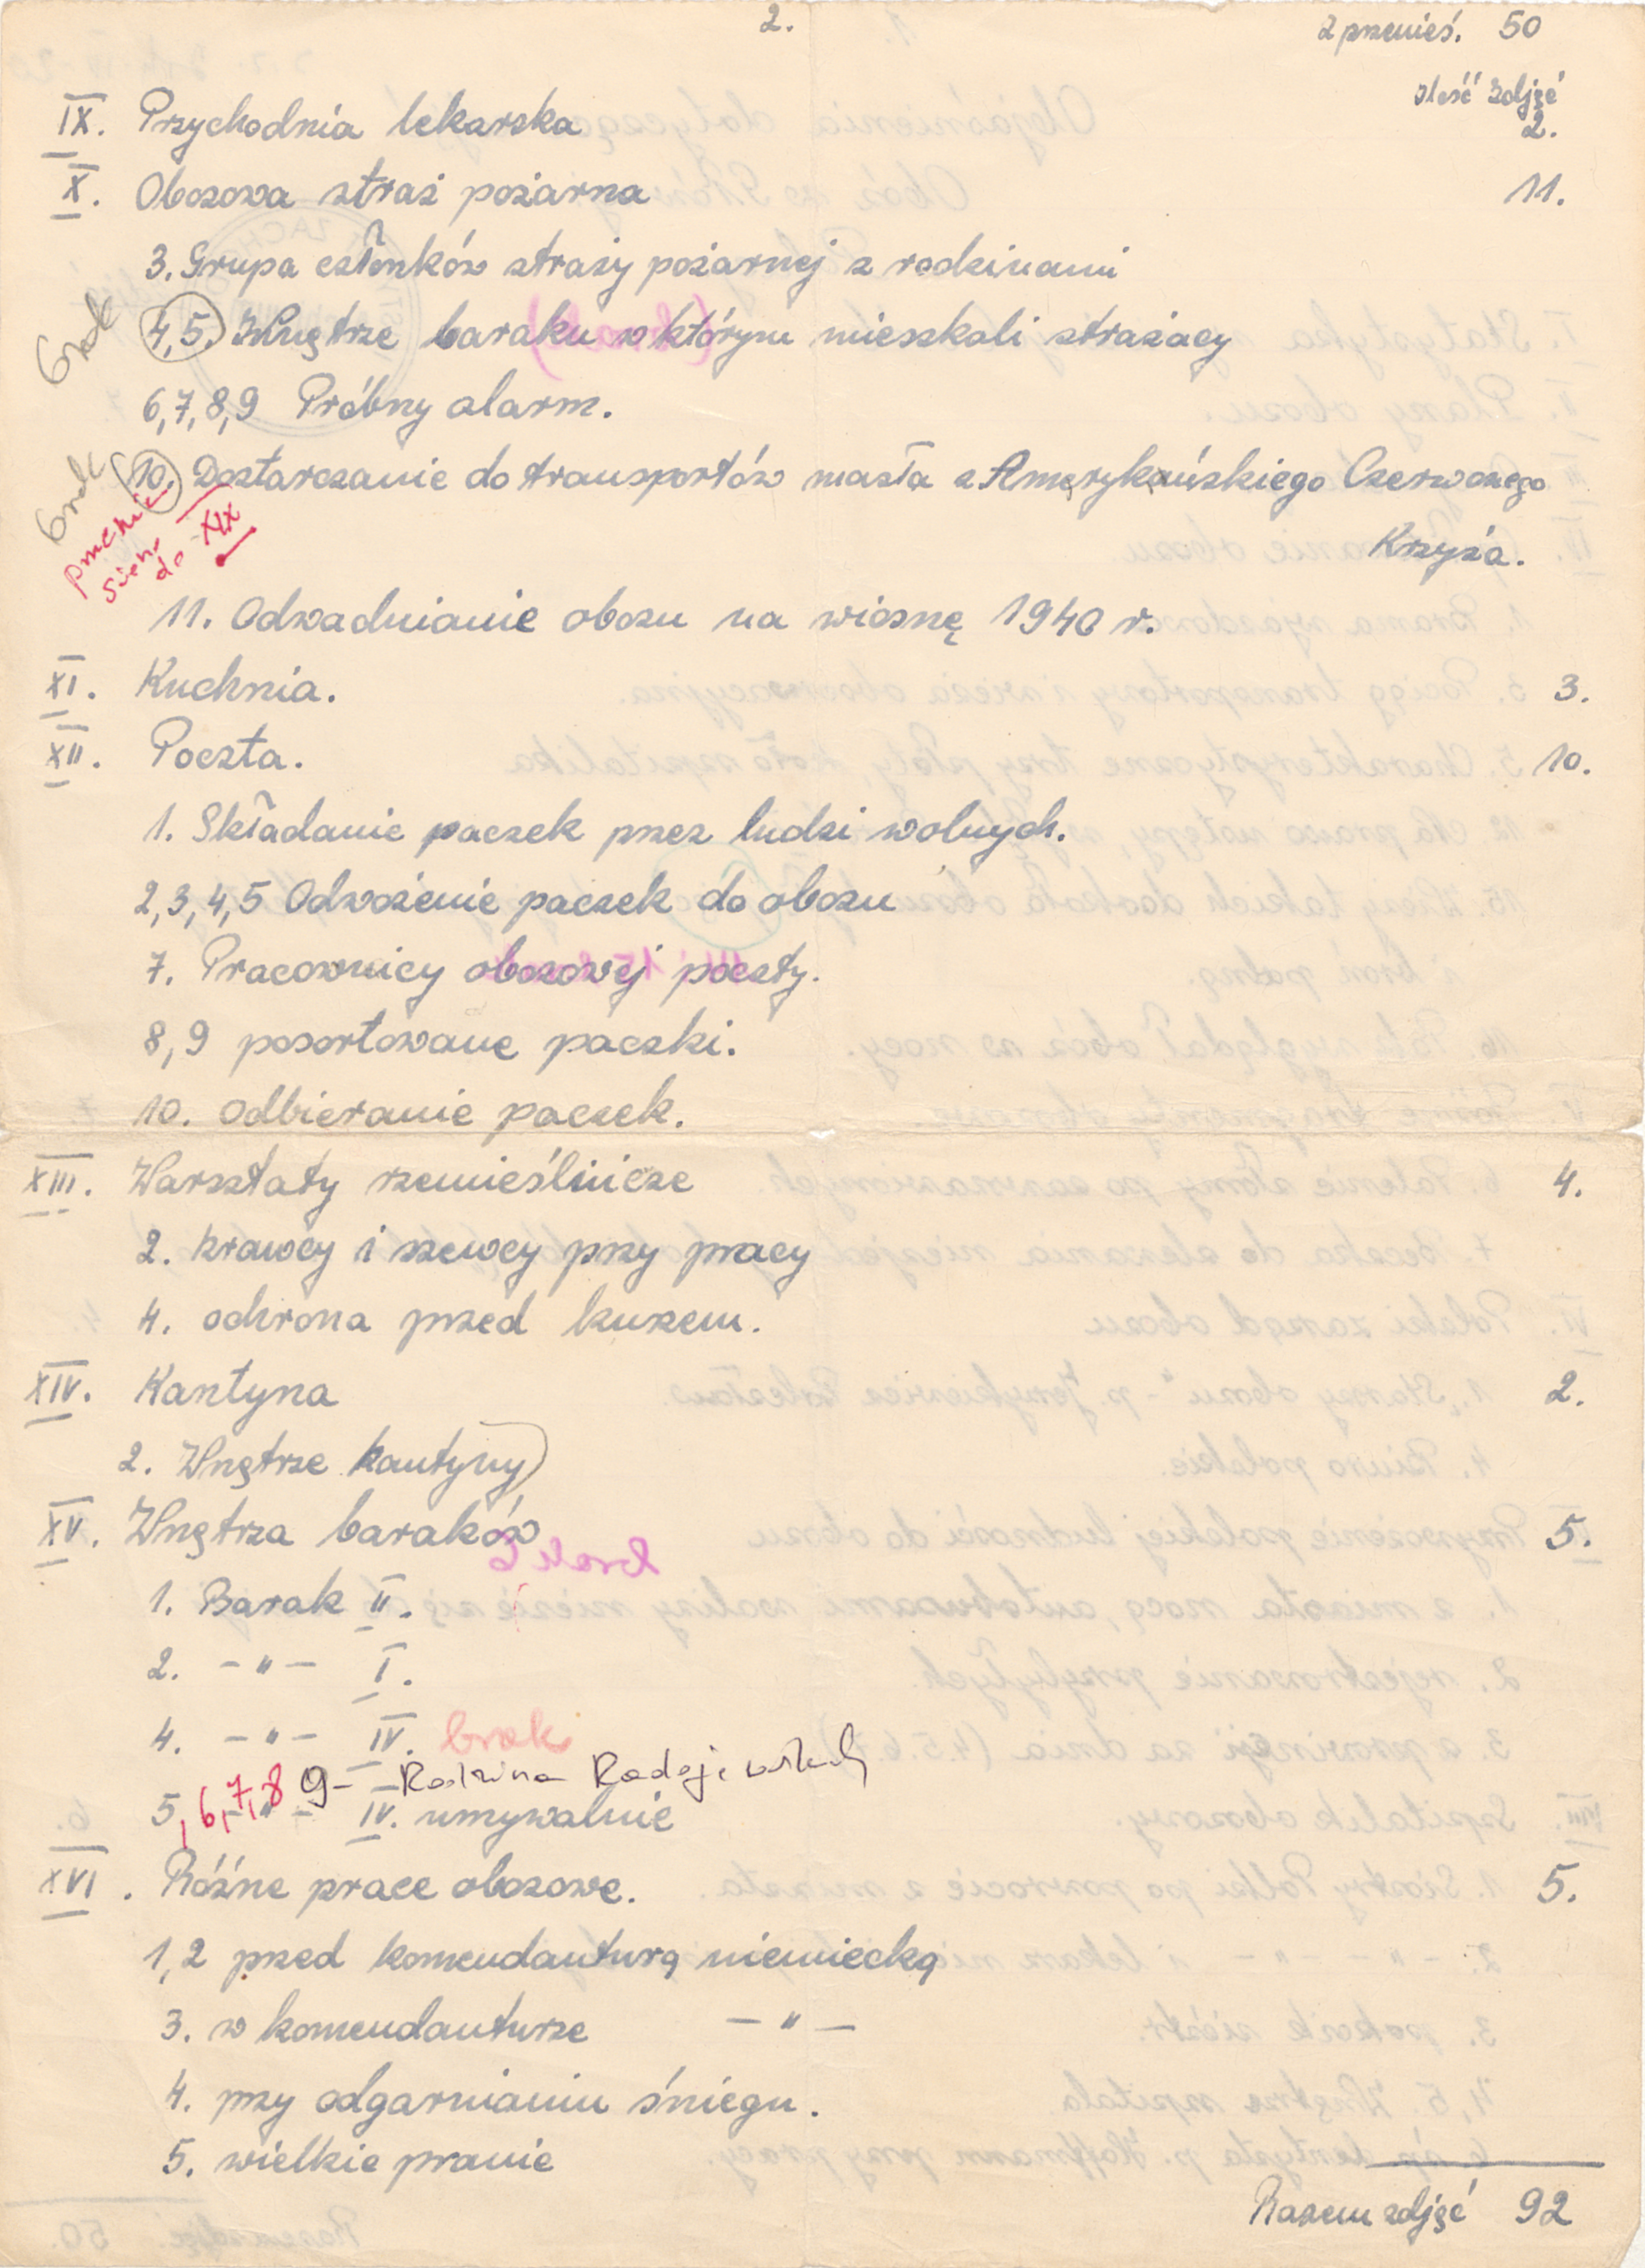 2.
z przenieś. 50
Ilość zdjęć
IX. Przychodnia lekarska 2.
X. Obozowa straż pożarna 11.
3. Grupa członków straży pożarnej z rodzinami
brak 4,5. Wnętrze baraku w którym mieszkali strażacy
6,7,8,9 Próbny alarm.
brak 10. Dostarczanie do transportów masła z Amerykańskiego Czerwonego
Krzyża.
do XIX
11. Odwadnianie obozu na wiosnę 1940 r.
XI. Kuchnia. 3.
XII. Poczta. 10.
1. Składanie paczek przez ludzi wolnych.
2,3,4,5 Odwożenie paczek do obozu
7. Pracownicy obozowej poczty.
8,9 posortowane paczki.
10. Odbieranie paczek.
XIII. Warsztaty rzemieślnicze 4.
2. krawcy i szewcy przy pracy
4. ochrona przed kurzem.
XIV. Kantyna 2.
2. Wnętrze kantyny)
XV. Wnętrza baraków 5.
1. Barak II.
2. – " – I.
4. – " – IV. brak
9 – Rodzina Radojewskich
5,6,7,8 – " – IV. umywalnie
XVI. Różne prace obozowe. 5.
1,2 przed komendanturą niemiecką
3. w komendanturze – " –
4. przy odgarnianiu śniegu.
5. wielkie pranie
Razem zdjęć 92